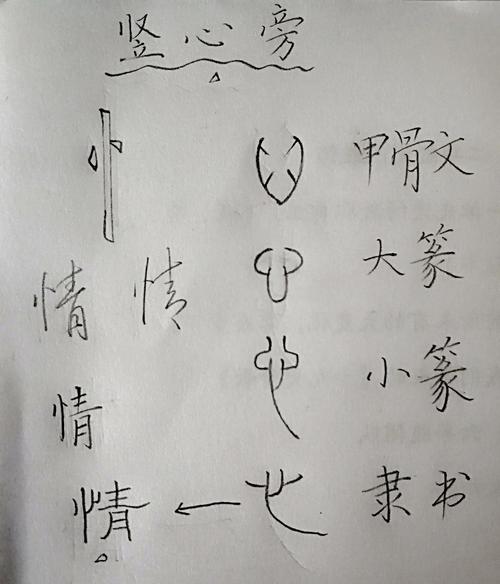 竖心旁
忄 甲骨文
情 情 大篆
情 小篆
情 ← 隶书